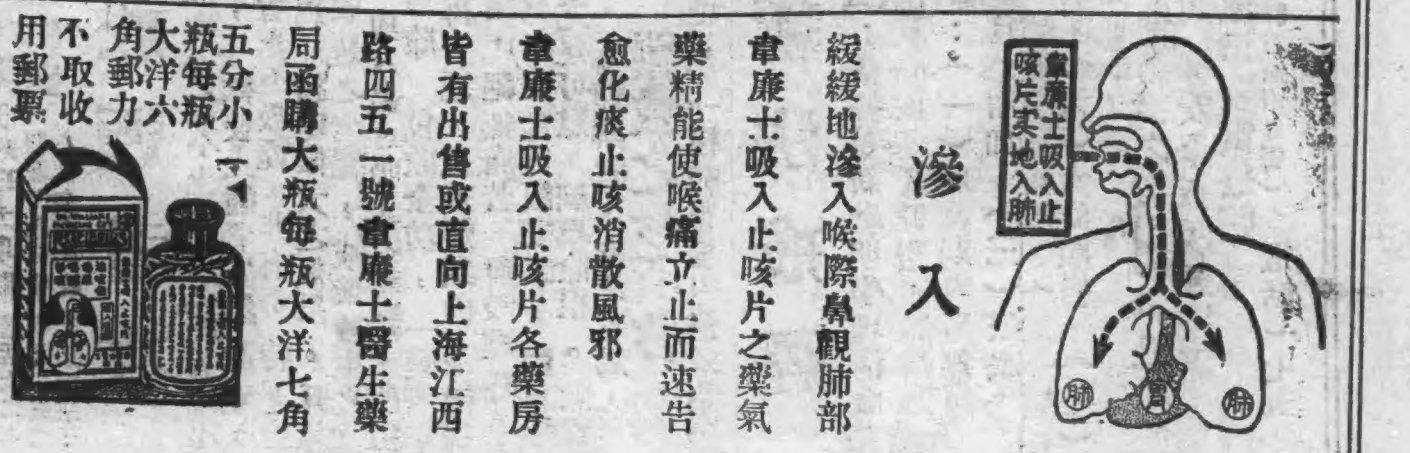 韋廉士吸入止
咳片实地入肺
肺
胃
肺
滲入
緩緩地滲入喉際鼻觀肺部
韋廉士吸入止咳片之藥氣
藥精能使喉痛立止而速告
愈化痰止咳消散風邪
韋廉士吸入止咳片各藥房
皆有出售或直向上海江西
路四五一號韋廉士醫生藥
局函購大瓶每瓶大洋七角
五分小
瓶每瓶
大洋六
角郵力
不取收
用郵票